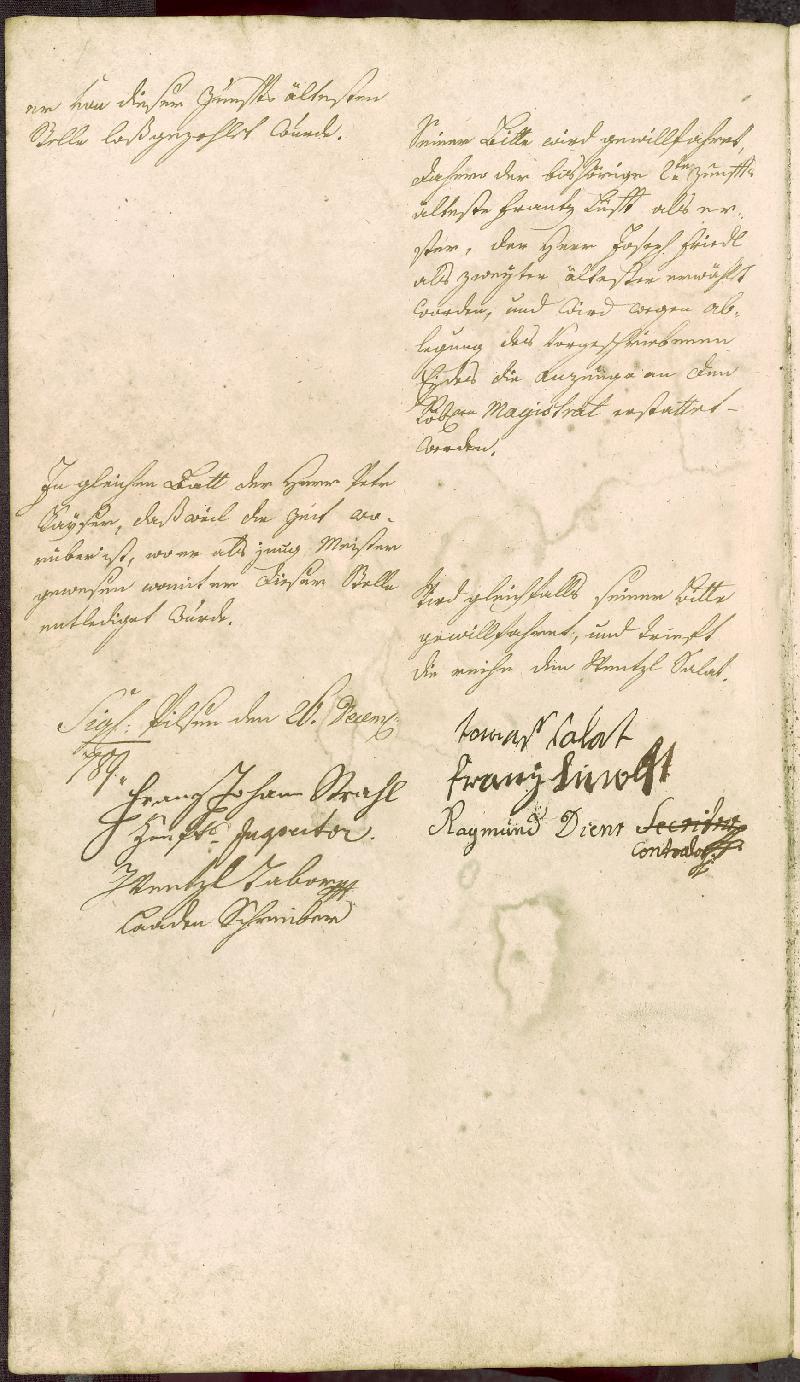 er von dieser Zunfts ältesten
Stelle loßgezehlet würde.
Seiner Bitte wird gewillfahret,
dahero der bishörige 2te Zunfts
älteste Frantz Lufft als er-
ster, der Herr Joseph Friedl
als zweyter ältester erwählt
worden, und wird wegen ab-
legung des Vorgeschriebenen
Eides die Anzeuge an den
Löben Magistrat erstattet
werden.
In gleichen Batt der Herr Petr
Kayser, daß weil die Zeit vo-
rüber ist, wo er als jung Meister
gewesen womit er dieser Stelle
entlediget würde.
Wird gleichfalls seiner Bitte
gewillfahret, und trieft
die reihe den Wentzl Salat.
Sigl: Pilsen den 26. Decemb:
1789.
Franz Johann Strahl
Zunfts Inspector.
Wentzl Tabory
Laaden Schreiber
tomaß Salat
Frantz
Raymund Dient Secritar
Contralor